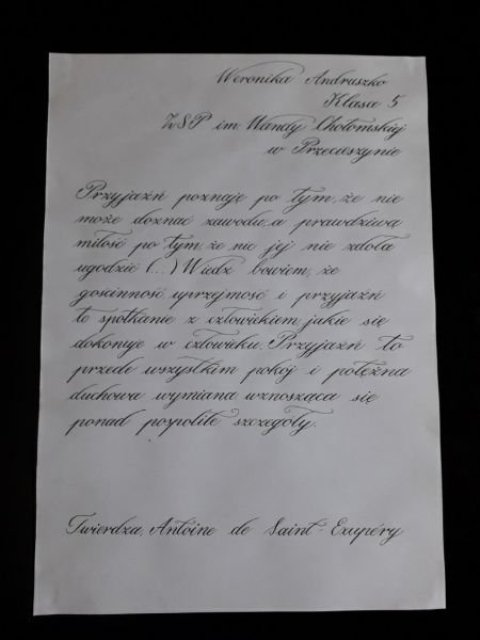 Weronika Andruszko
Klasa 5
ZSP im Wandy Chotomskiej
w Przecuszynie
Przyjaźń poznaję po tym, że nie
może doznać zawodu, a prawdziwą
miłość po tym, że nic jej nie zdoła
ugodzić (...) Wiedz bowiem, że
gościnność uprzejmość i przyjaźń
to spotkanie z człowiekiem, jakie się
dokonuje w człowieku. Przyjaźń to
przede wszystkim pokój i potężna
duchowa wymiana wznosząca się
ponad pospolite szczegóły.
Twierdza, Antoine de Saint-Exupéry